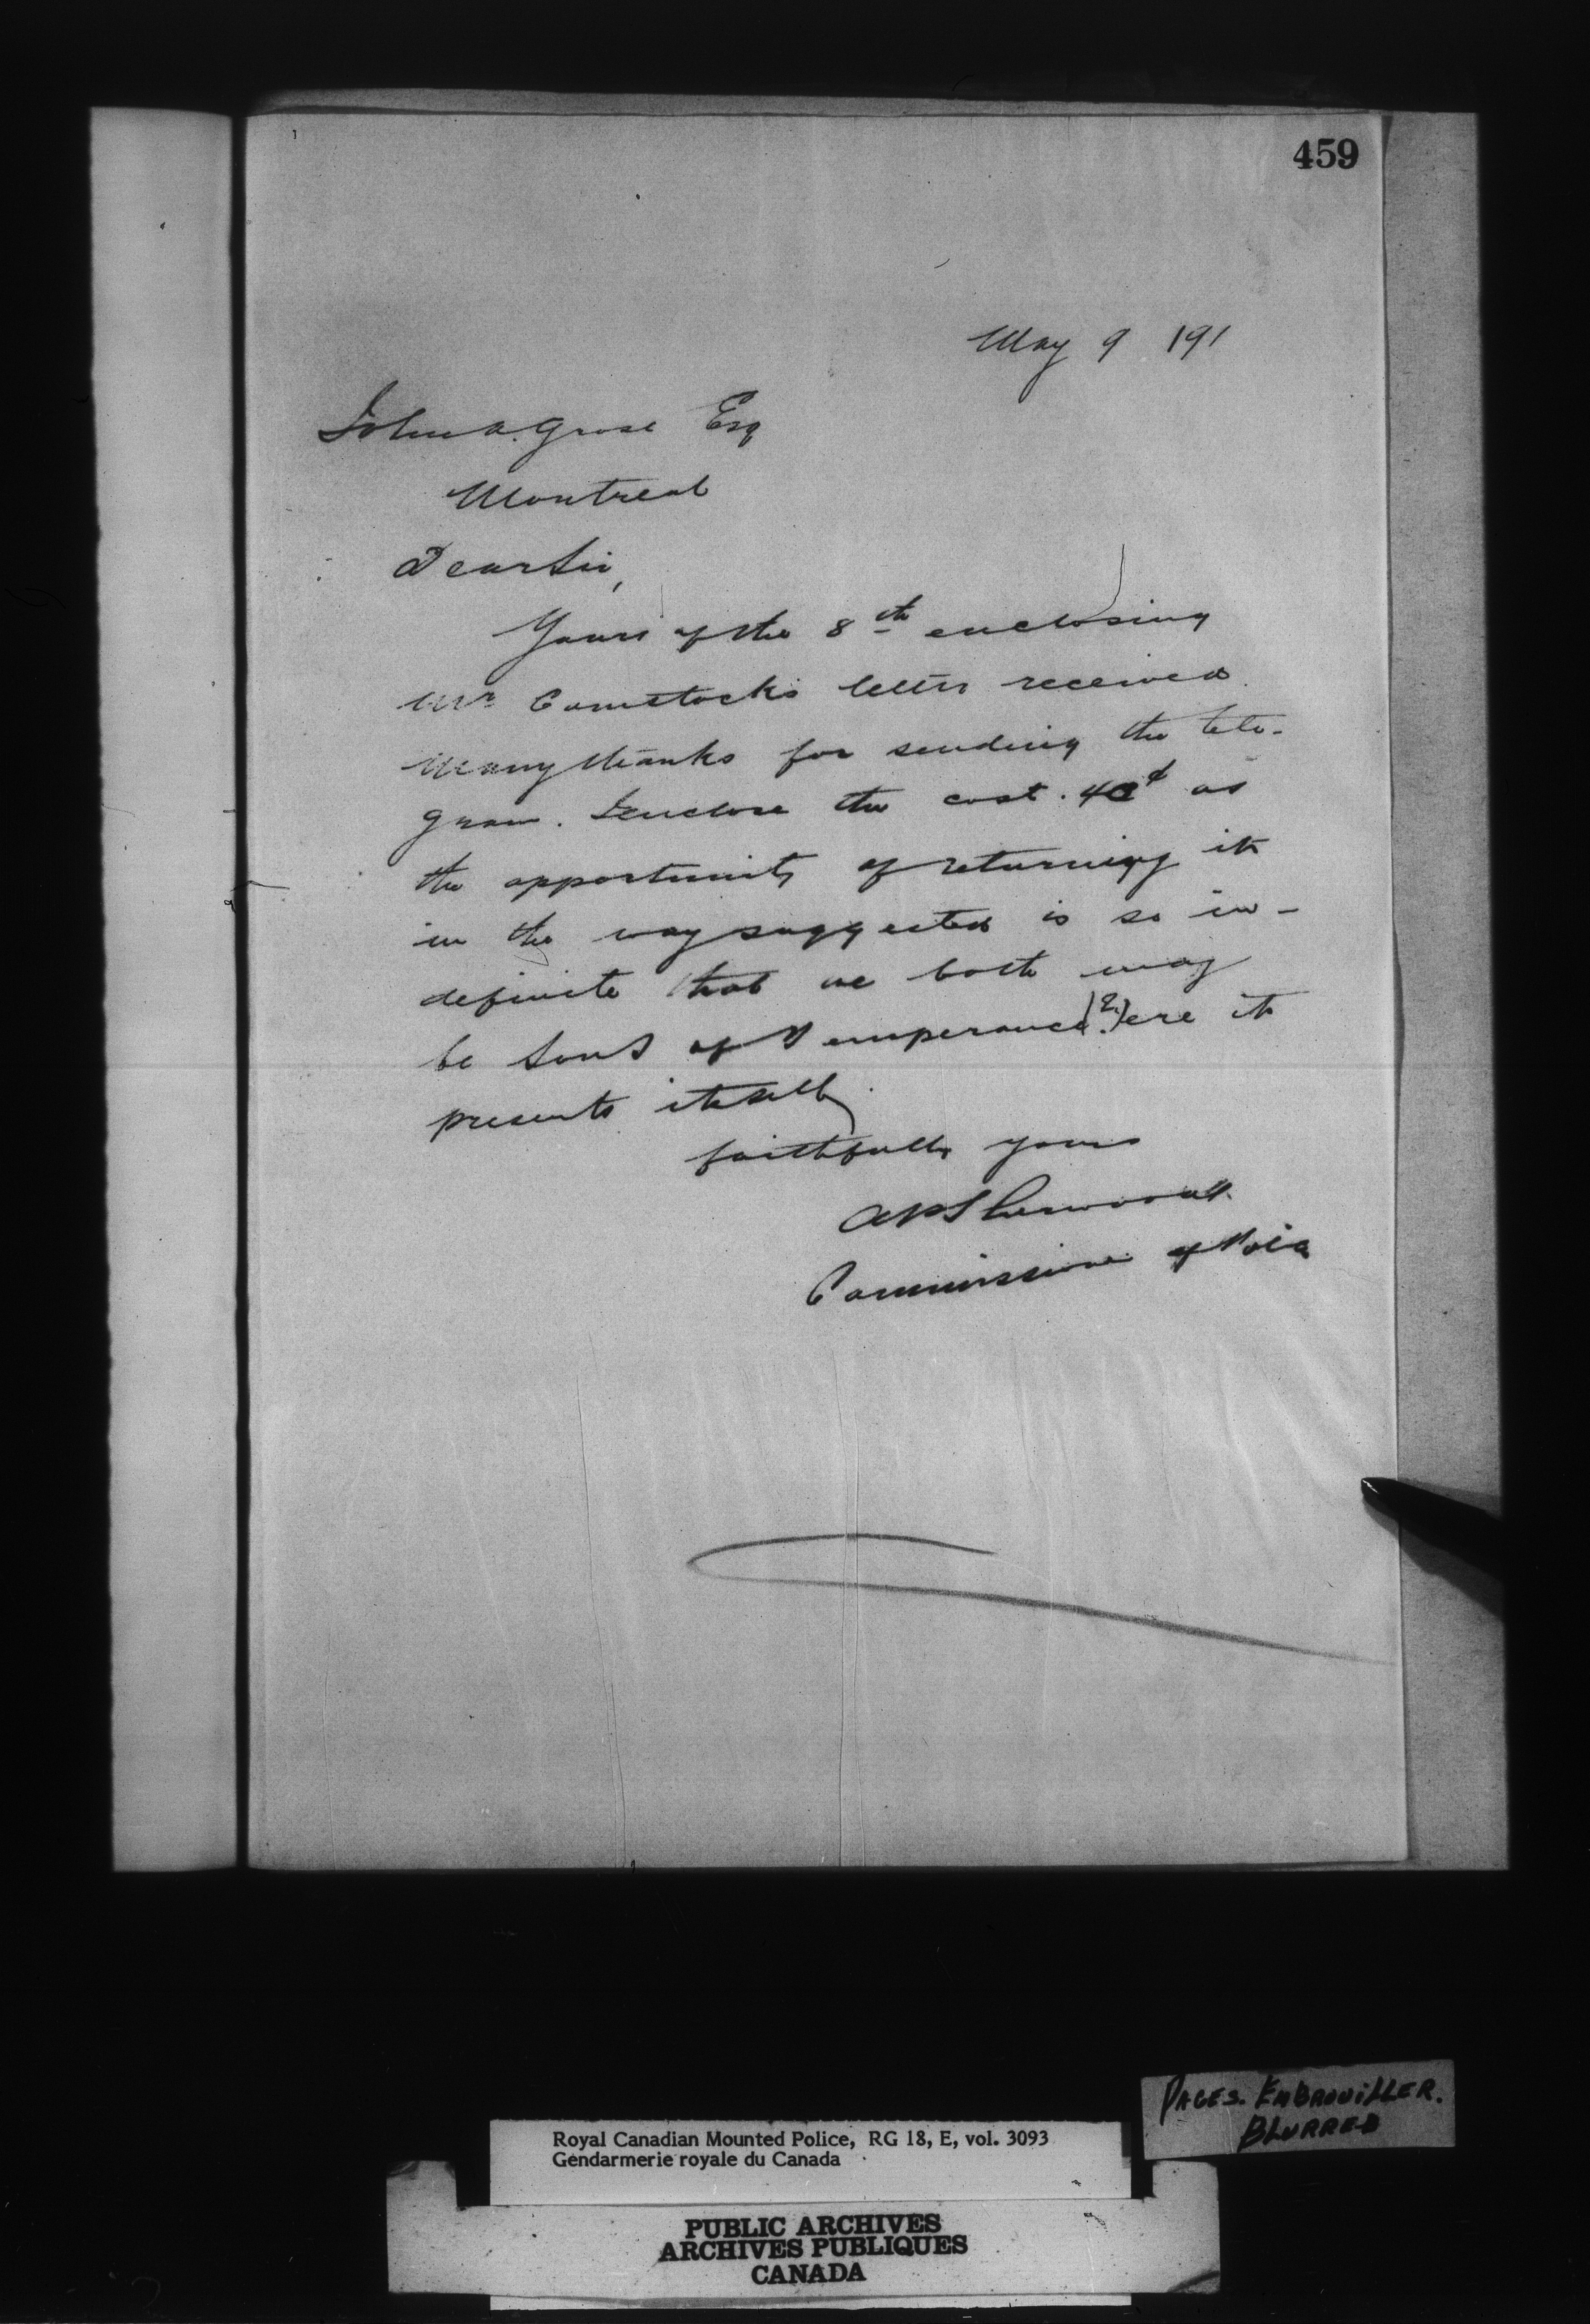 459
May 9 191
John A. Grose Esq
Montreal
Dear Sir,
Yours of the 8th enclosing
Mr Comstocks letter received
Many thanks for sending the tele-
gram. I enclose the cost. 40¢ as
the opportunity of returning it
in the way suggested is so in-
definite that we both may
be Sons of Temperance (?) ere it
presents itself
faithfully yours
A P Sherwood
Commissioner of Police
PAGES. EMBROUILLER.
BLURRED
Royal Canadian Mounted Police, RG 18, E, vol. 3093
Gendarmerie royale du Canada
PUBLIC ARCHIVES
ARCHIVES PUBLIQUES
CANADA